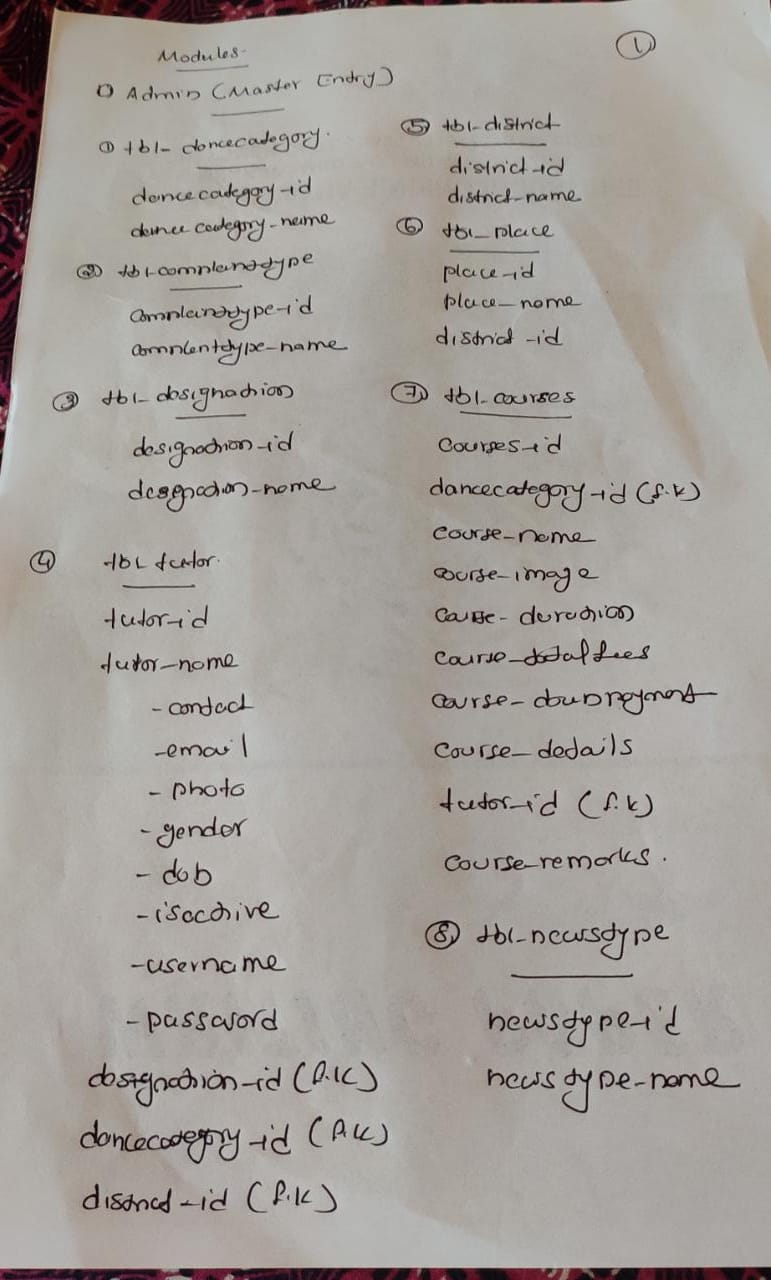 Modules
①
1) Admin (Master Entry)
① tbl-dancecategory.
dancecategory-id
dance category-name
② tbl-complainttype
complainttype-id
complenttype-name
③ tbl-designation
designation-id
designation-name
④ tbl tutor.
tutor-id
tutor-name
-contact
-email
-photo
-gender
-dob
-isactive
-username
-password
designation-id (f.k)
dancecategory-id (f.k)
district-id (f.k)
⑤ tbl-district
district-id
district-name
⑥ tbl_place
place-id
place-name
district-id
⑦ tbl-courses
courses-id
dancecategory-id (f.k)
course-name
course-image
course-duration
course-total fees
course-
course-details
tutor-id (f.k)
course-remarks.
⑧ tbl-newstype
newstype-id
newstype-name